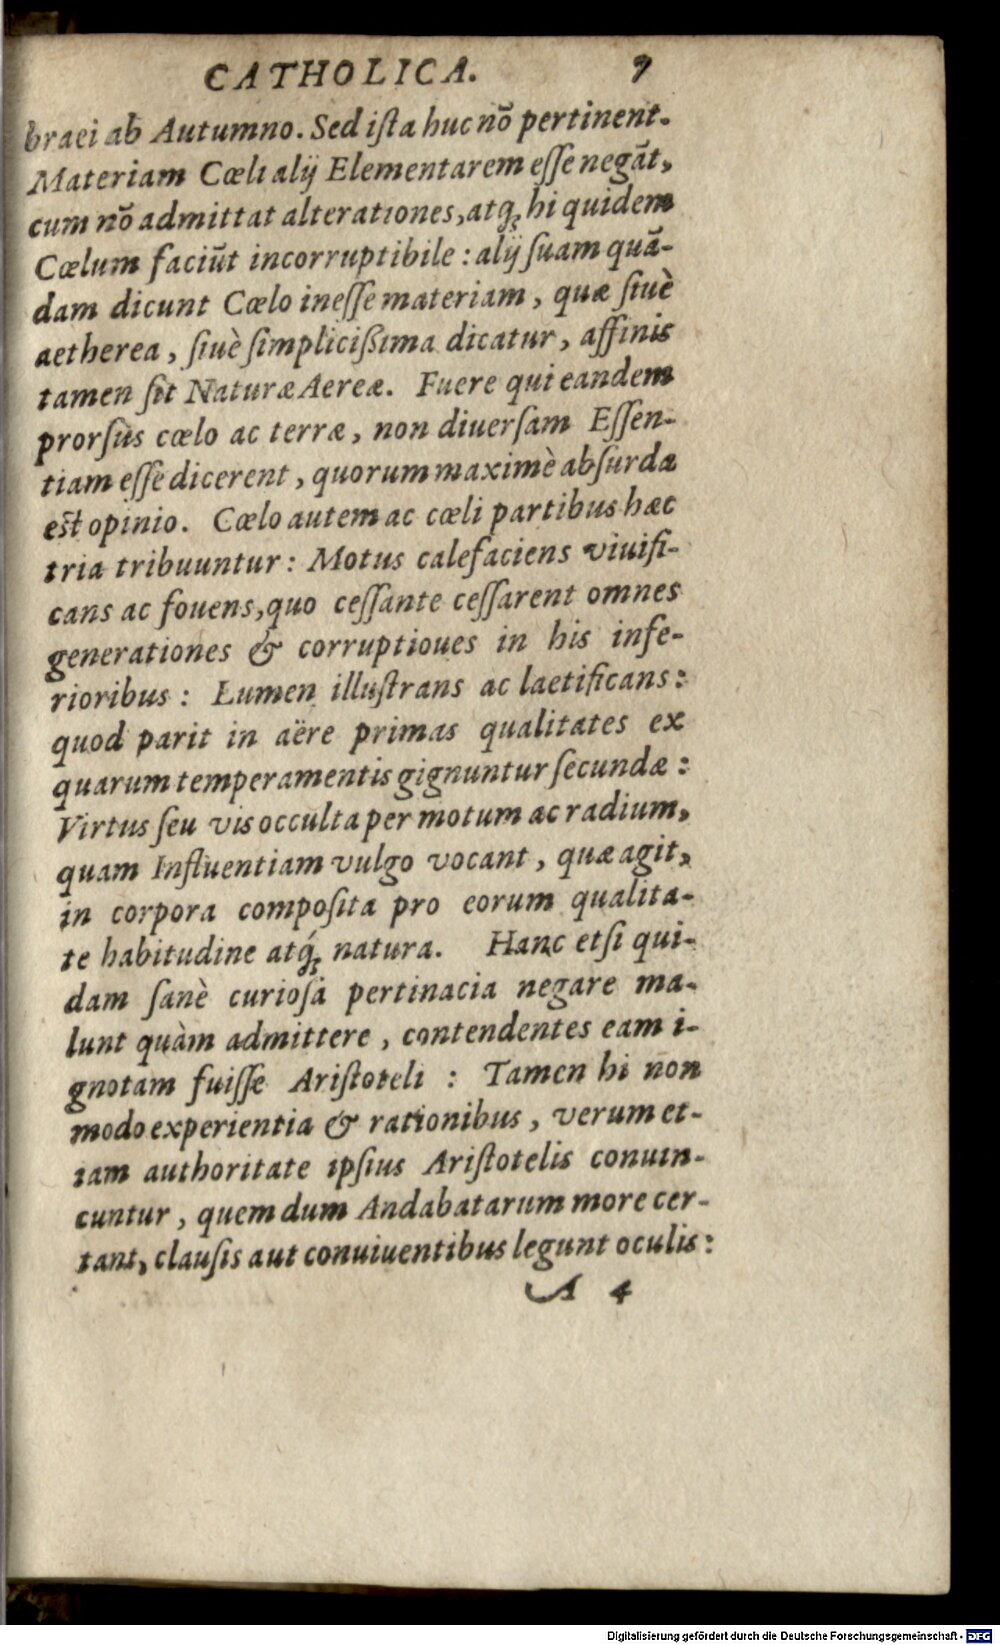 CATHOLICA. 7
braei ab Autumno. Sed iſta huc nõ pertinent.
Materiam Cœli alij Elementarem eſſe negãt,
cum nõ admittat alterationes, atq́; hi quidem
Cœlum faciũt incorruptibile : alij ſuam quã-
dam dicunt Cœlo ineſſe materiam, quæ ſiuè
aetherea, ſiuè ſimplicißima dicatur, affinis
tamen ſit Naturæ Aereæ. Fuere qui eandem
prorſus cœlo ac terræ, non diuerſam Eſſen-
tiam eſſe dicerent, quorum maximè abſurda
eſt opinio. Cœlo autem ac cœli partibus hæc
tria tribuuntur : Motus calefaciens viuifi-
cans ac fouens, quo ceſſante ceſſarent omnes
generationes & corruptioues in his infe-
rioribus : Lumen illuſtrans ac laetificans :
quod parit in aëre primas qualitates ex
quarum temperamentis gignuntur ſecundæ :
Virtus ſeu vis occulta per motum ac radium,
quam Influentiam vulgo vocant, quæ agit,
in corpora compoſita pro eorum qualita-
te habitudine atq́; natura. Hanc etſi qui-
dam ſanè curioſa pertinacia negare ma-
lunt quàm admittere, contendentes eam i-
gnotam fuiſſe Ariſtoteli : Tamen hi non
modo experientia & rationibus, verum et-
iam authoritate ipſius Ariſtotelis conuin-
cuntur, quem dum Andabatarum more cer-
tant, clauſis aut conuiuentibus legunt oculis :
A 4
Digitalisierung gefördert durch die Deutsche Forschungsgemeinschaft - DFG